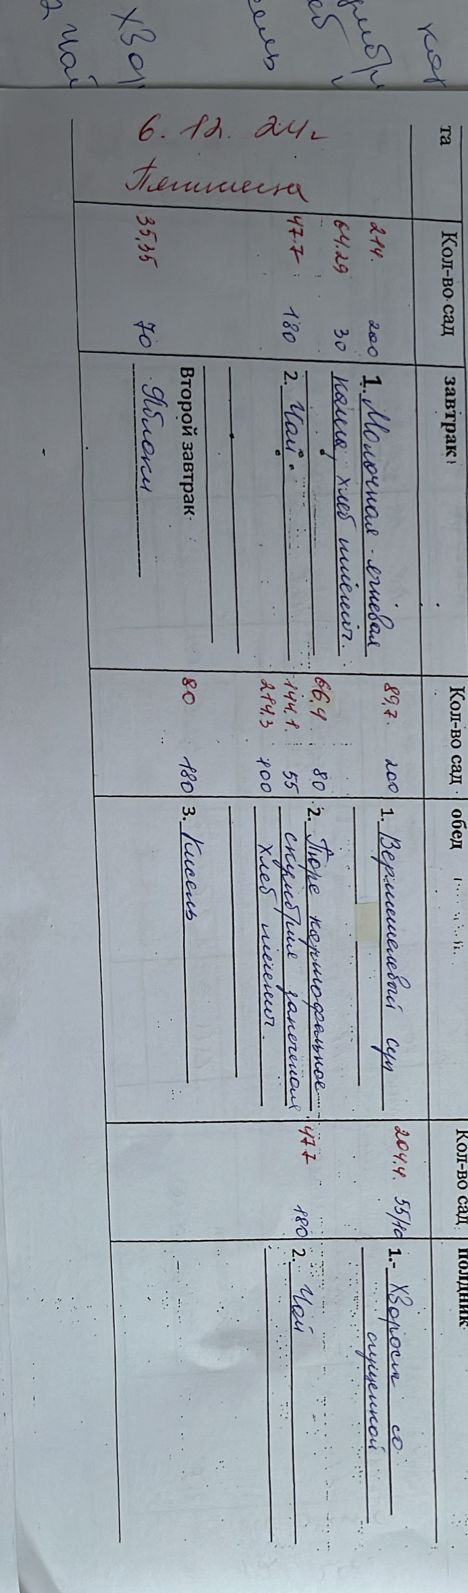 та
Кол-во сад
завтрак
Кол-во сад
обед
Кол-во сад
полдник
6. 12. 24г
Пятница
214. 200
64.29 30
47.7 180
35,35 70
1. Молочная ячневая
каша, хлеб пшенич.
2. Чай
Второй завтрак
Яблоки
89,7. 200
66,4 80
144.1. 55
214.3 100
80 180
1. Вермишелевый суп
2. Пюре картофальное
скумбрия запеченая
хлеб пшенич.
3. Кисель
204.4. 55/10
47.7 180
1. Хворост со
сгущенкой
2. Чай
хвор
2 Чай